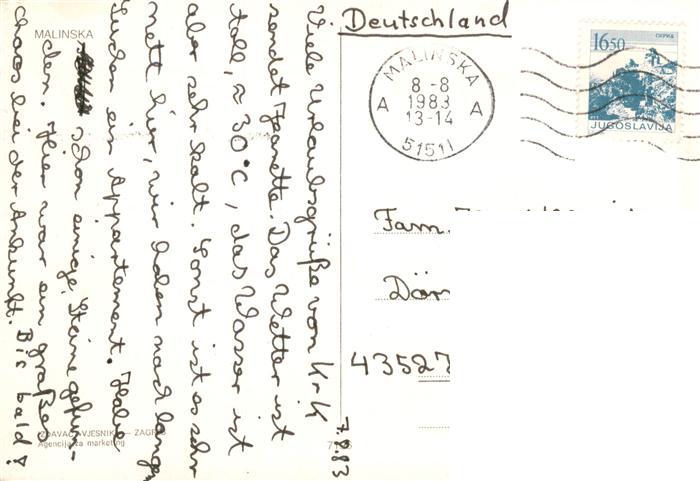 MALINSKA
Viele Urlaubsgrüße von Krk
sendet Janette. Das Wetter ist
toll, ≈ 30°C, das Wasser ist
aber sehr kalt. Sonst ist es sehr
nett hier, wir haben nach langem
Suchen ein Appartement. Habe
schon einige Steine gefun-
den. Hier war ein großes
Chaos bei der Ankunft. Bis bald!
7.8.83
IZDAVAČ VJESNIK — ZAGREB
Agencija za marketing
Deutschland
MALINSKA
8 -8
1983
13-14
A A
51511
16.50
JUGOSLAVIJA
Fam.
Dör
43527